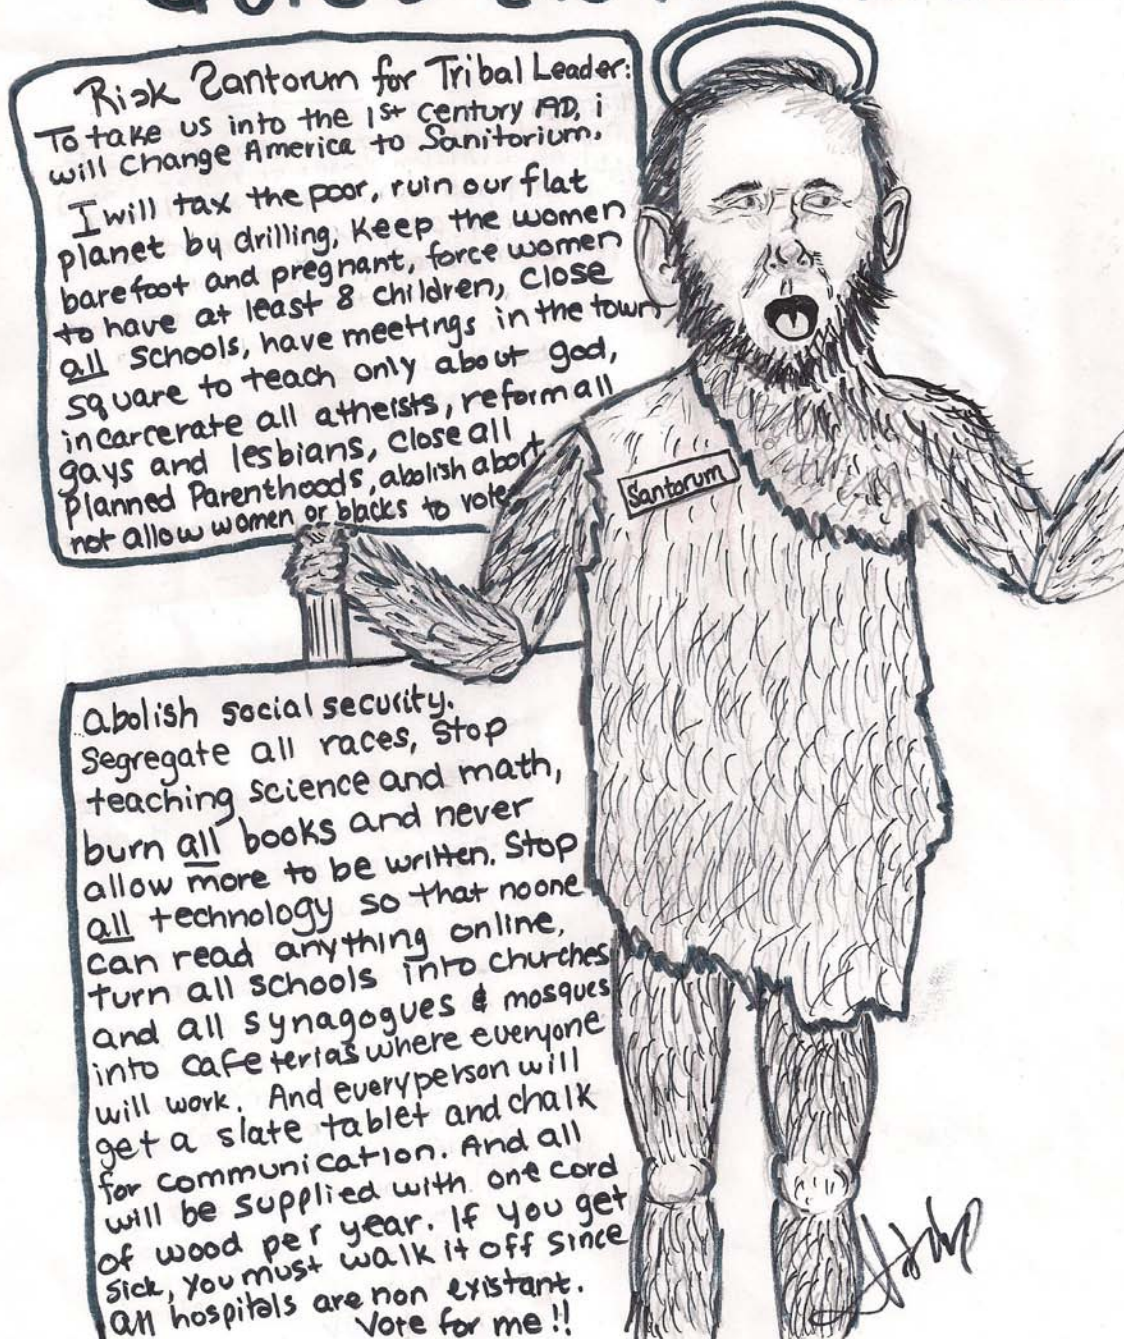 Risk Santorum for Tribal Leader:
To take us into the 1st century AD, i
will change America to Sanitorium.
I will tax the poor, ruin our flat
planet by drilling, keep the women
barefoot and pregnant, force women
to have at least 8 children, close
all schools, have meetings in the town
square to teach only about god,
incarcerate all atheists, reform all
gays and lesbians, close all
Planned Parenthoods, abolish abort
not allow women or blacks to vote
Santorum
abolish social security.
Segregate all races, stop
teaching science and math,
burn all books and never
allow more to be written. Stop
all technology so that no one
can read anything online,
turn all schools into churches
and all synagogues & mosques
into cafeterias where everyone
will work. And every person will
get a slate tablet and chalk
for communication. And all
will be supplied with one cord
of wood per year. If you get
sick, you must walk it off since
all hospitals are non existant.
Vote for me!!